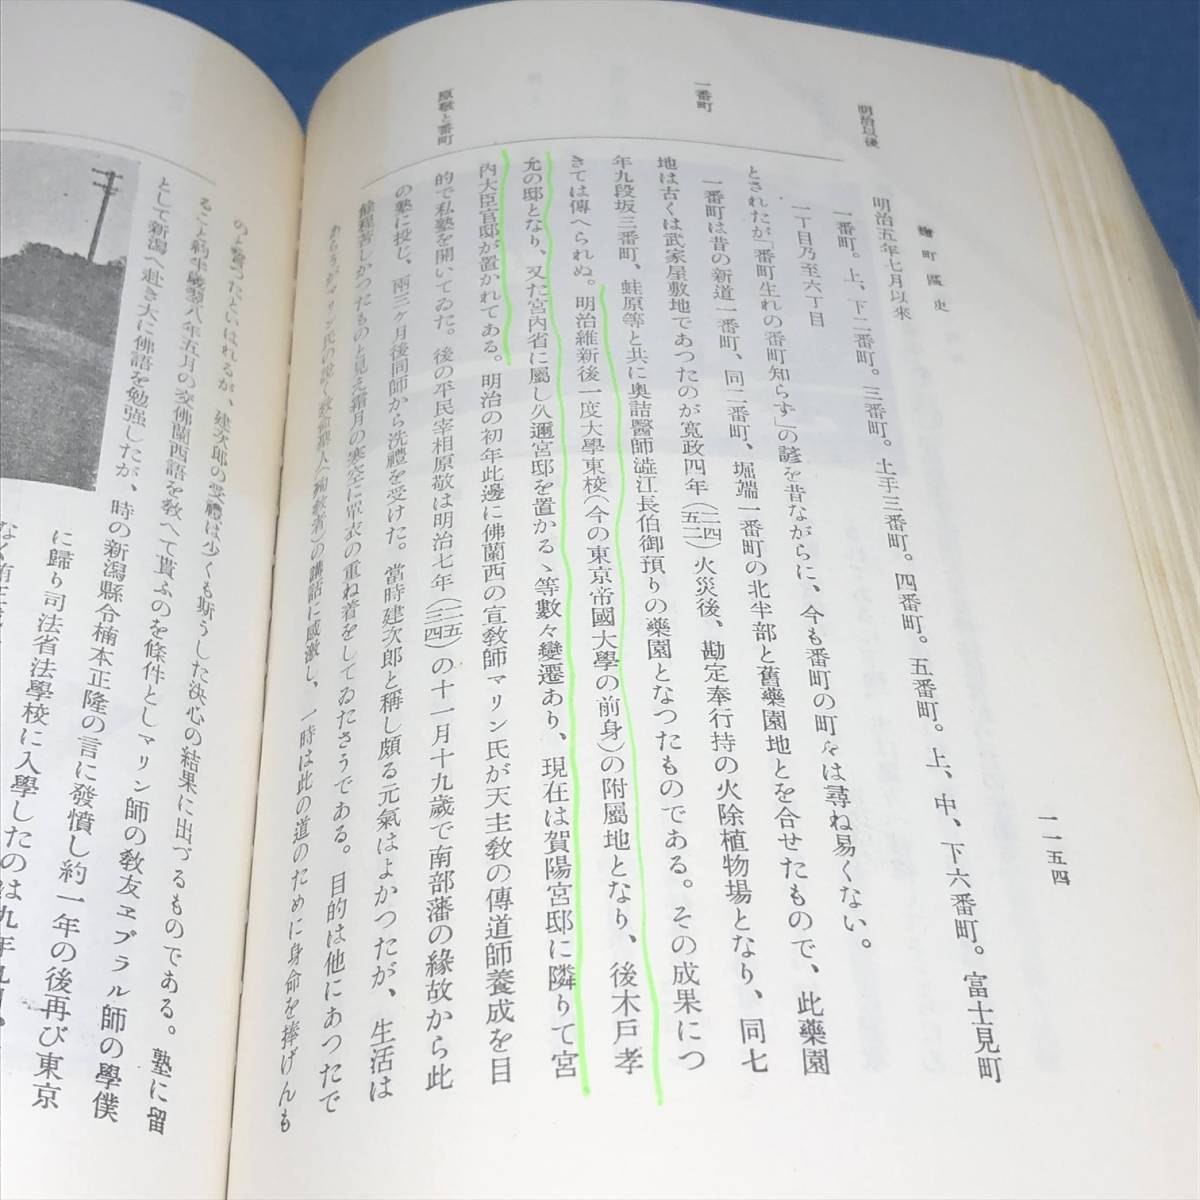 麴町區史
一一五四
明治以後
明治五年七月以來
一番町。上、下二番町。三番町。土手三番町。四番町。五番町。上、中、下六番町。富士見町
一丁目乃至六丁目
とされたが「番町生れの番町知らず」の諺を昔ながらに、今も番町の町々は尋ね易くない。
一番町
一番町は昔の新道一番町、同二番町、堀端一番町の北半部と舊藥園地とを合せたもので、此藥園
地は古くは武家屋敷地であつたのが寬政四年(二四五二)火災後、勘定奉行持の火除植物場となり、同七
年九段坂三番町、蛙原等と共に奥詰醫師澁江長伯御預りの藥園となつたものである。その成果につ
きては傳へられぬ。明治維新後一度大學東校(今の東京帝國大學の前身)の附屬地となり、後木戸孝
允の邸となり、又た宮內省に屬し久邇宮邸を置かるゝ等數々變遷あり、現在は賀陽宮邸に隣りて宮
內大臣官邸が置かれてある。明治の初年此邊に佛蘭西の宣敎師マリン氏が天主敎の傳道師養成を目
原敬と番町
的で私塾を開いてゐた。後の平民宰相原敬は明治七年(二五三四)の十一月十九歲で南部藩の緣故から此
の塾に投し、兩三ヶ月後同師から洗禮を受けた。當時建次郎と稱し頗る元氣はよかつたが、生活は
餘程苦しかつたものと見え霜月の寒空に單衣の重ね着をしてゐたさうである。目的は他にあつたで
あらうがマリン氏の說く致命聖人(殉敎者)の講話に感激し、一時は此の道のために身命を捧げんも
のと誓つたといはれるが、建次郎の受禮は少くも斯うした決心の結果に出づるものである。塾に留
ること約半歲翌八年五月の交佛蘭西語を敎へて貰ふのを條件としマリン師の敎友ヱブラル師の學僕
として新潟へ赴き大に佛語を勉强したが、時の新潟縣令楠本正隆の言に發憤し約一年の後再び東京
に歸り司法省法學校に入學したのは九年九月、